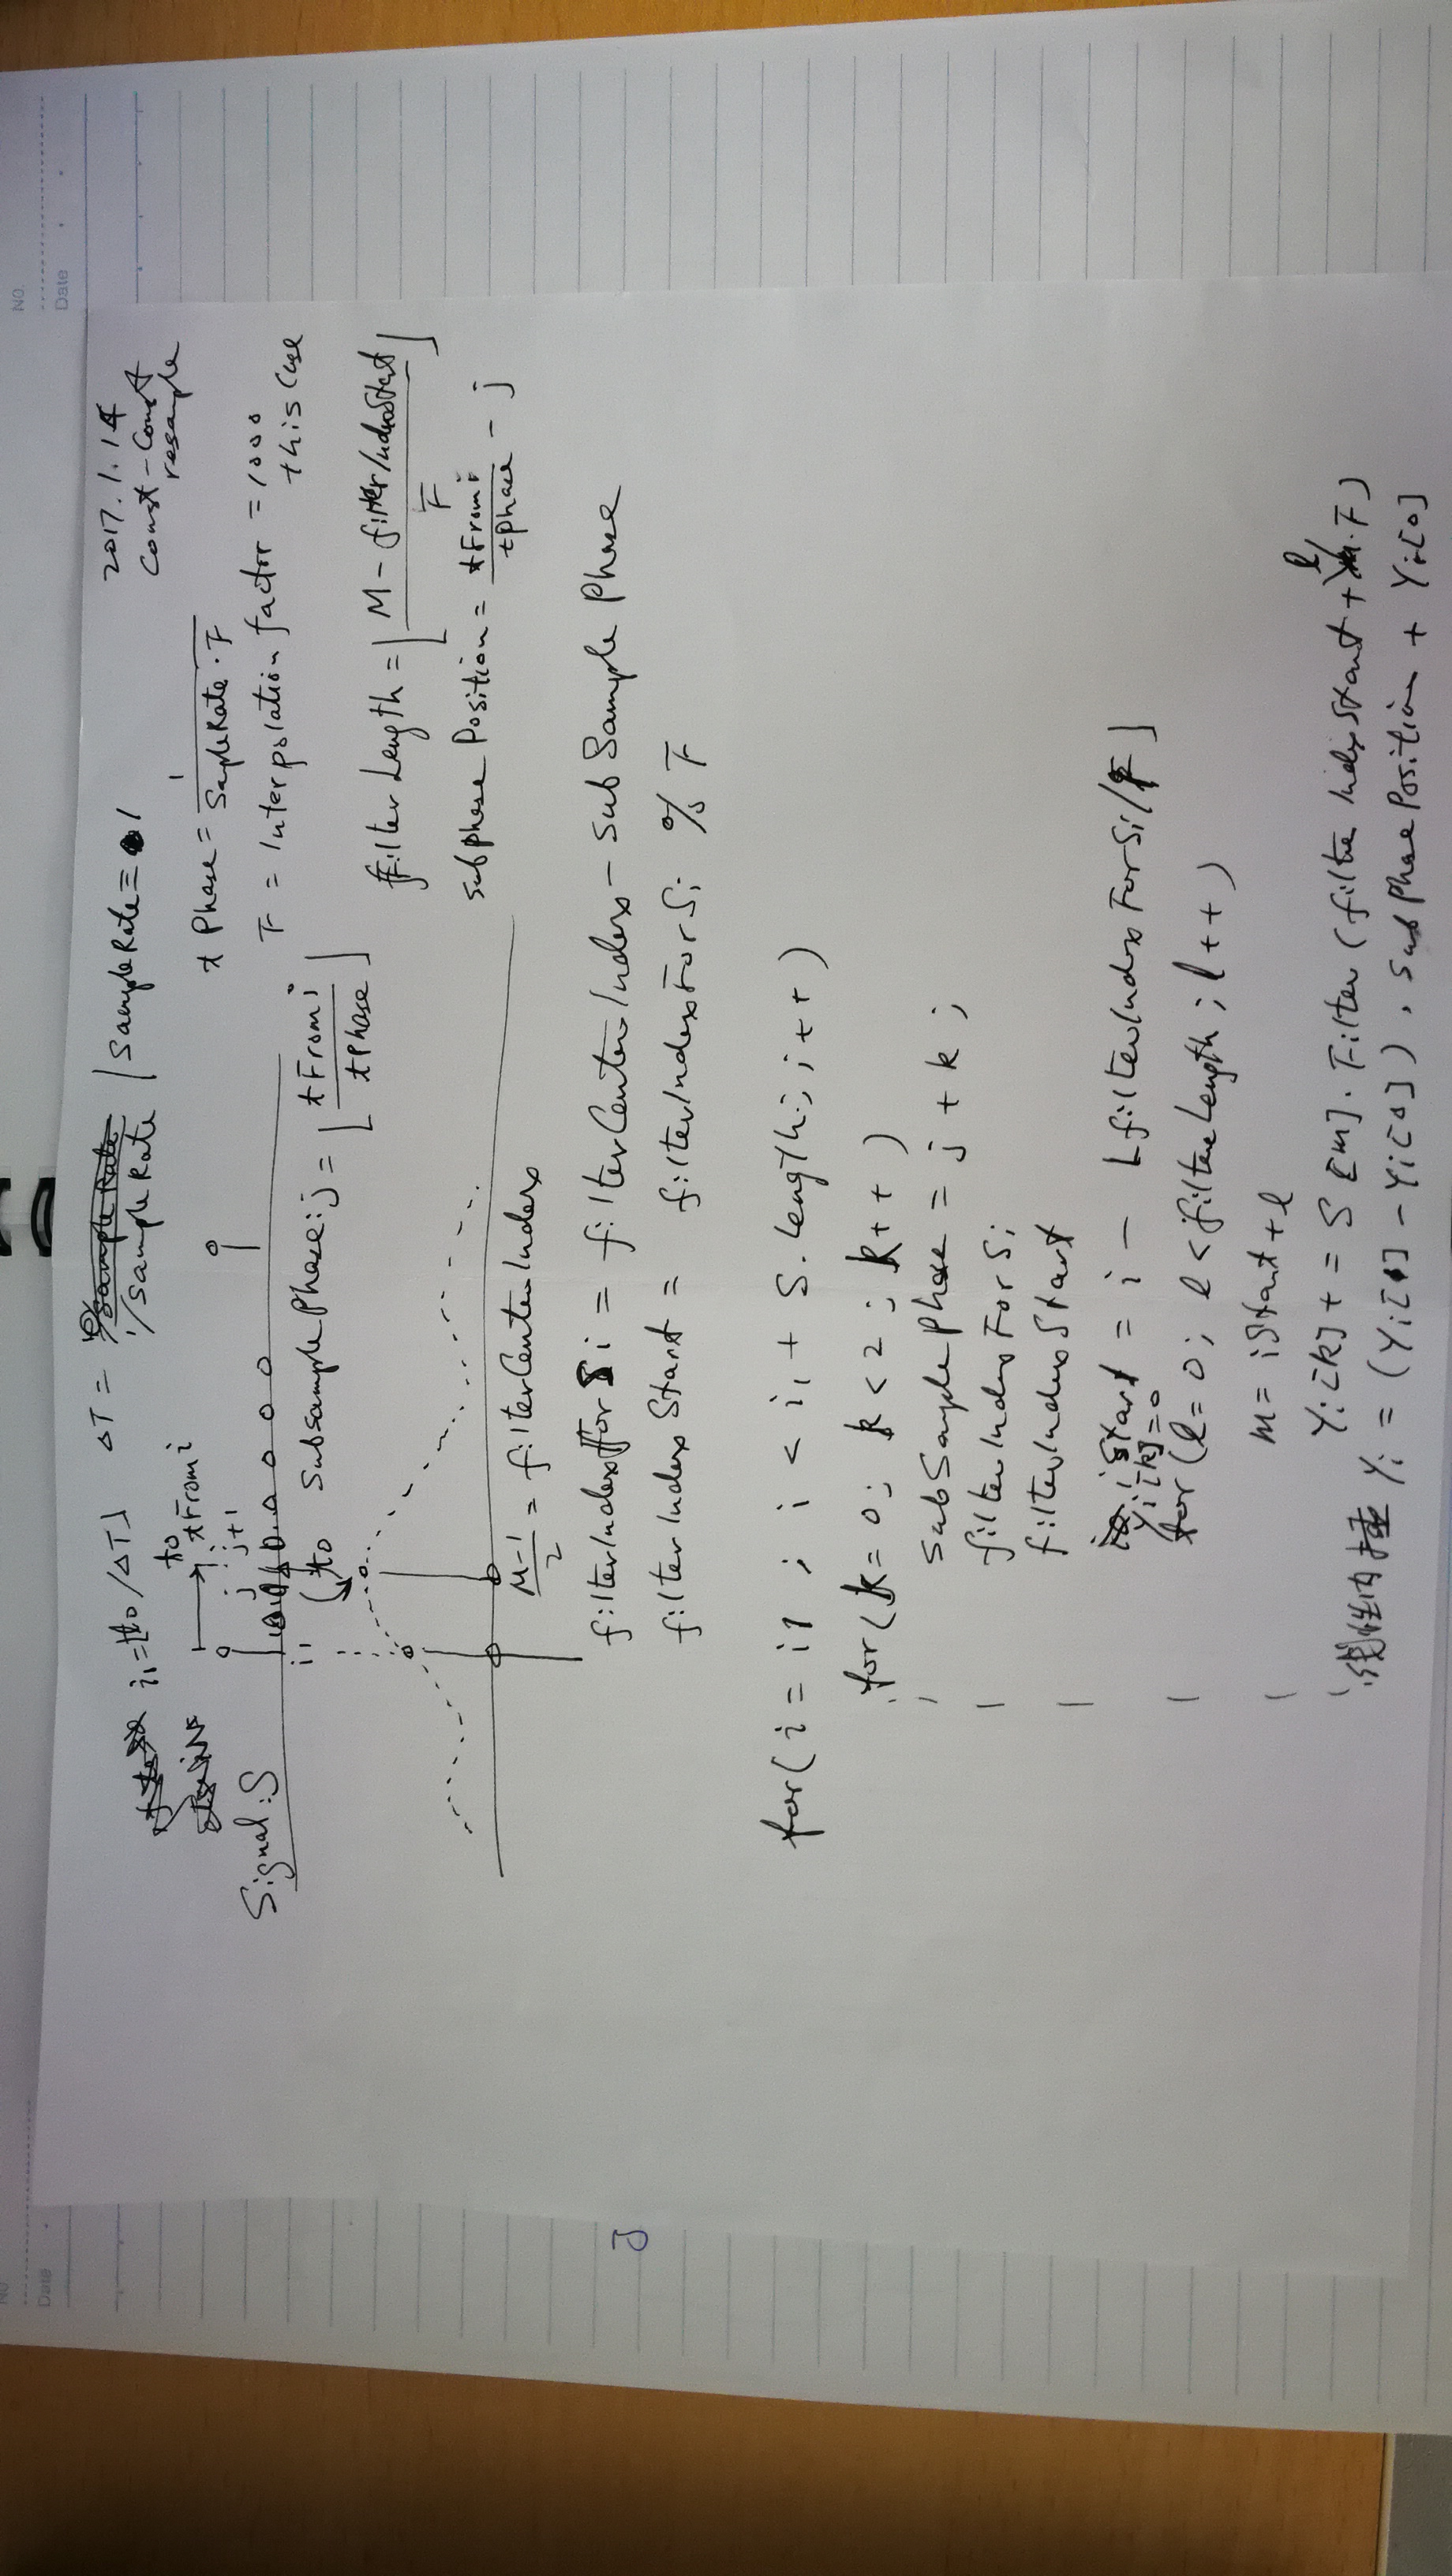 No.
Date
NO.
Date
i₁=⌊t0/ΔT⌋ ΔT = 1/SampleRate | SampleRate ≡ 1
2017.1.14
Const-Const
resample
t0
tFrom i
j j+1
Signal:S
i1
t0
t Phase = 1 / SapleRate · F
F = Interpolation factor = 1000
this Case
SubsamplePhase: j = ⌊ tFrom i / tPhase ⌋
filter Length = ⌊ M - filterIndexStart / F ⌋
subphase Position = tFrom i / tphase - j
M-1 / 2 = filterCenterIndex
filterIndexForSi = filterCenterIndex - subSample Phase
filterIndex Start = filterIndexForSi % F
J
for( i = i1 ; i < i₁ + S.length ; i++ )
for( k = 0 ; k < 2 ; k++ )
subSamplePhase = j + k ;
filterIndexForSi
filterIndexStart
iStart = i - ⌊filterIndexForSi/F⌋
Yi[k]=0
for ( l=0; l < filterLength ; l++ )
m = iStart + l
Yi[k] += S[m] . Filter ( filterIndexStart + l.F )
线性内插 Yi = (Yi[1] - Yi[0]) . subPhasePosition + Yi[0]